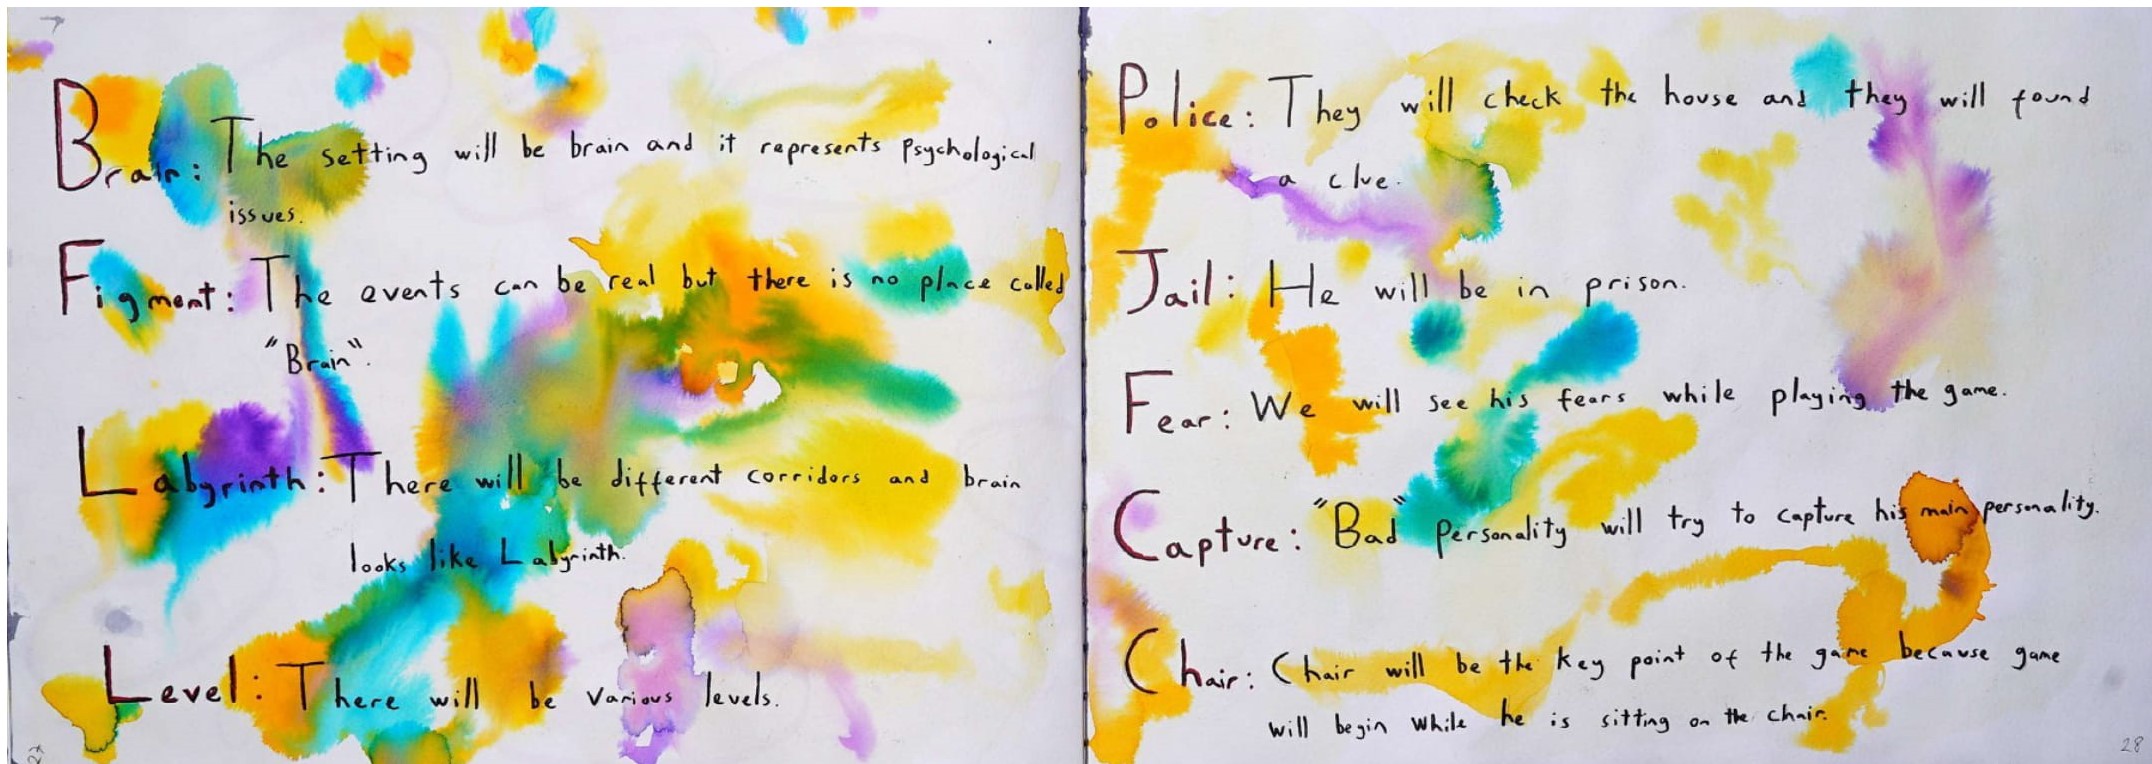 Brain: The setting will be brain and it represents Psychological
issues.
Figment: The events can be real but there is no place called
"Brain".
Labyrinth: There will be different corridors and brain
looks like Labyrinth.
Level: There will be various levels.
Police: They will check the house and they will found
a clue.
Jail: He will be in prison.
Fear: We will see his fears while playing the game.
Capture: "Bad" Personality will try to capture his main personality.
Chair: Chair will be the key point of the game because game
will begin while he is sitting on the chair.
28